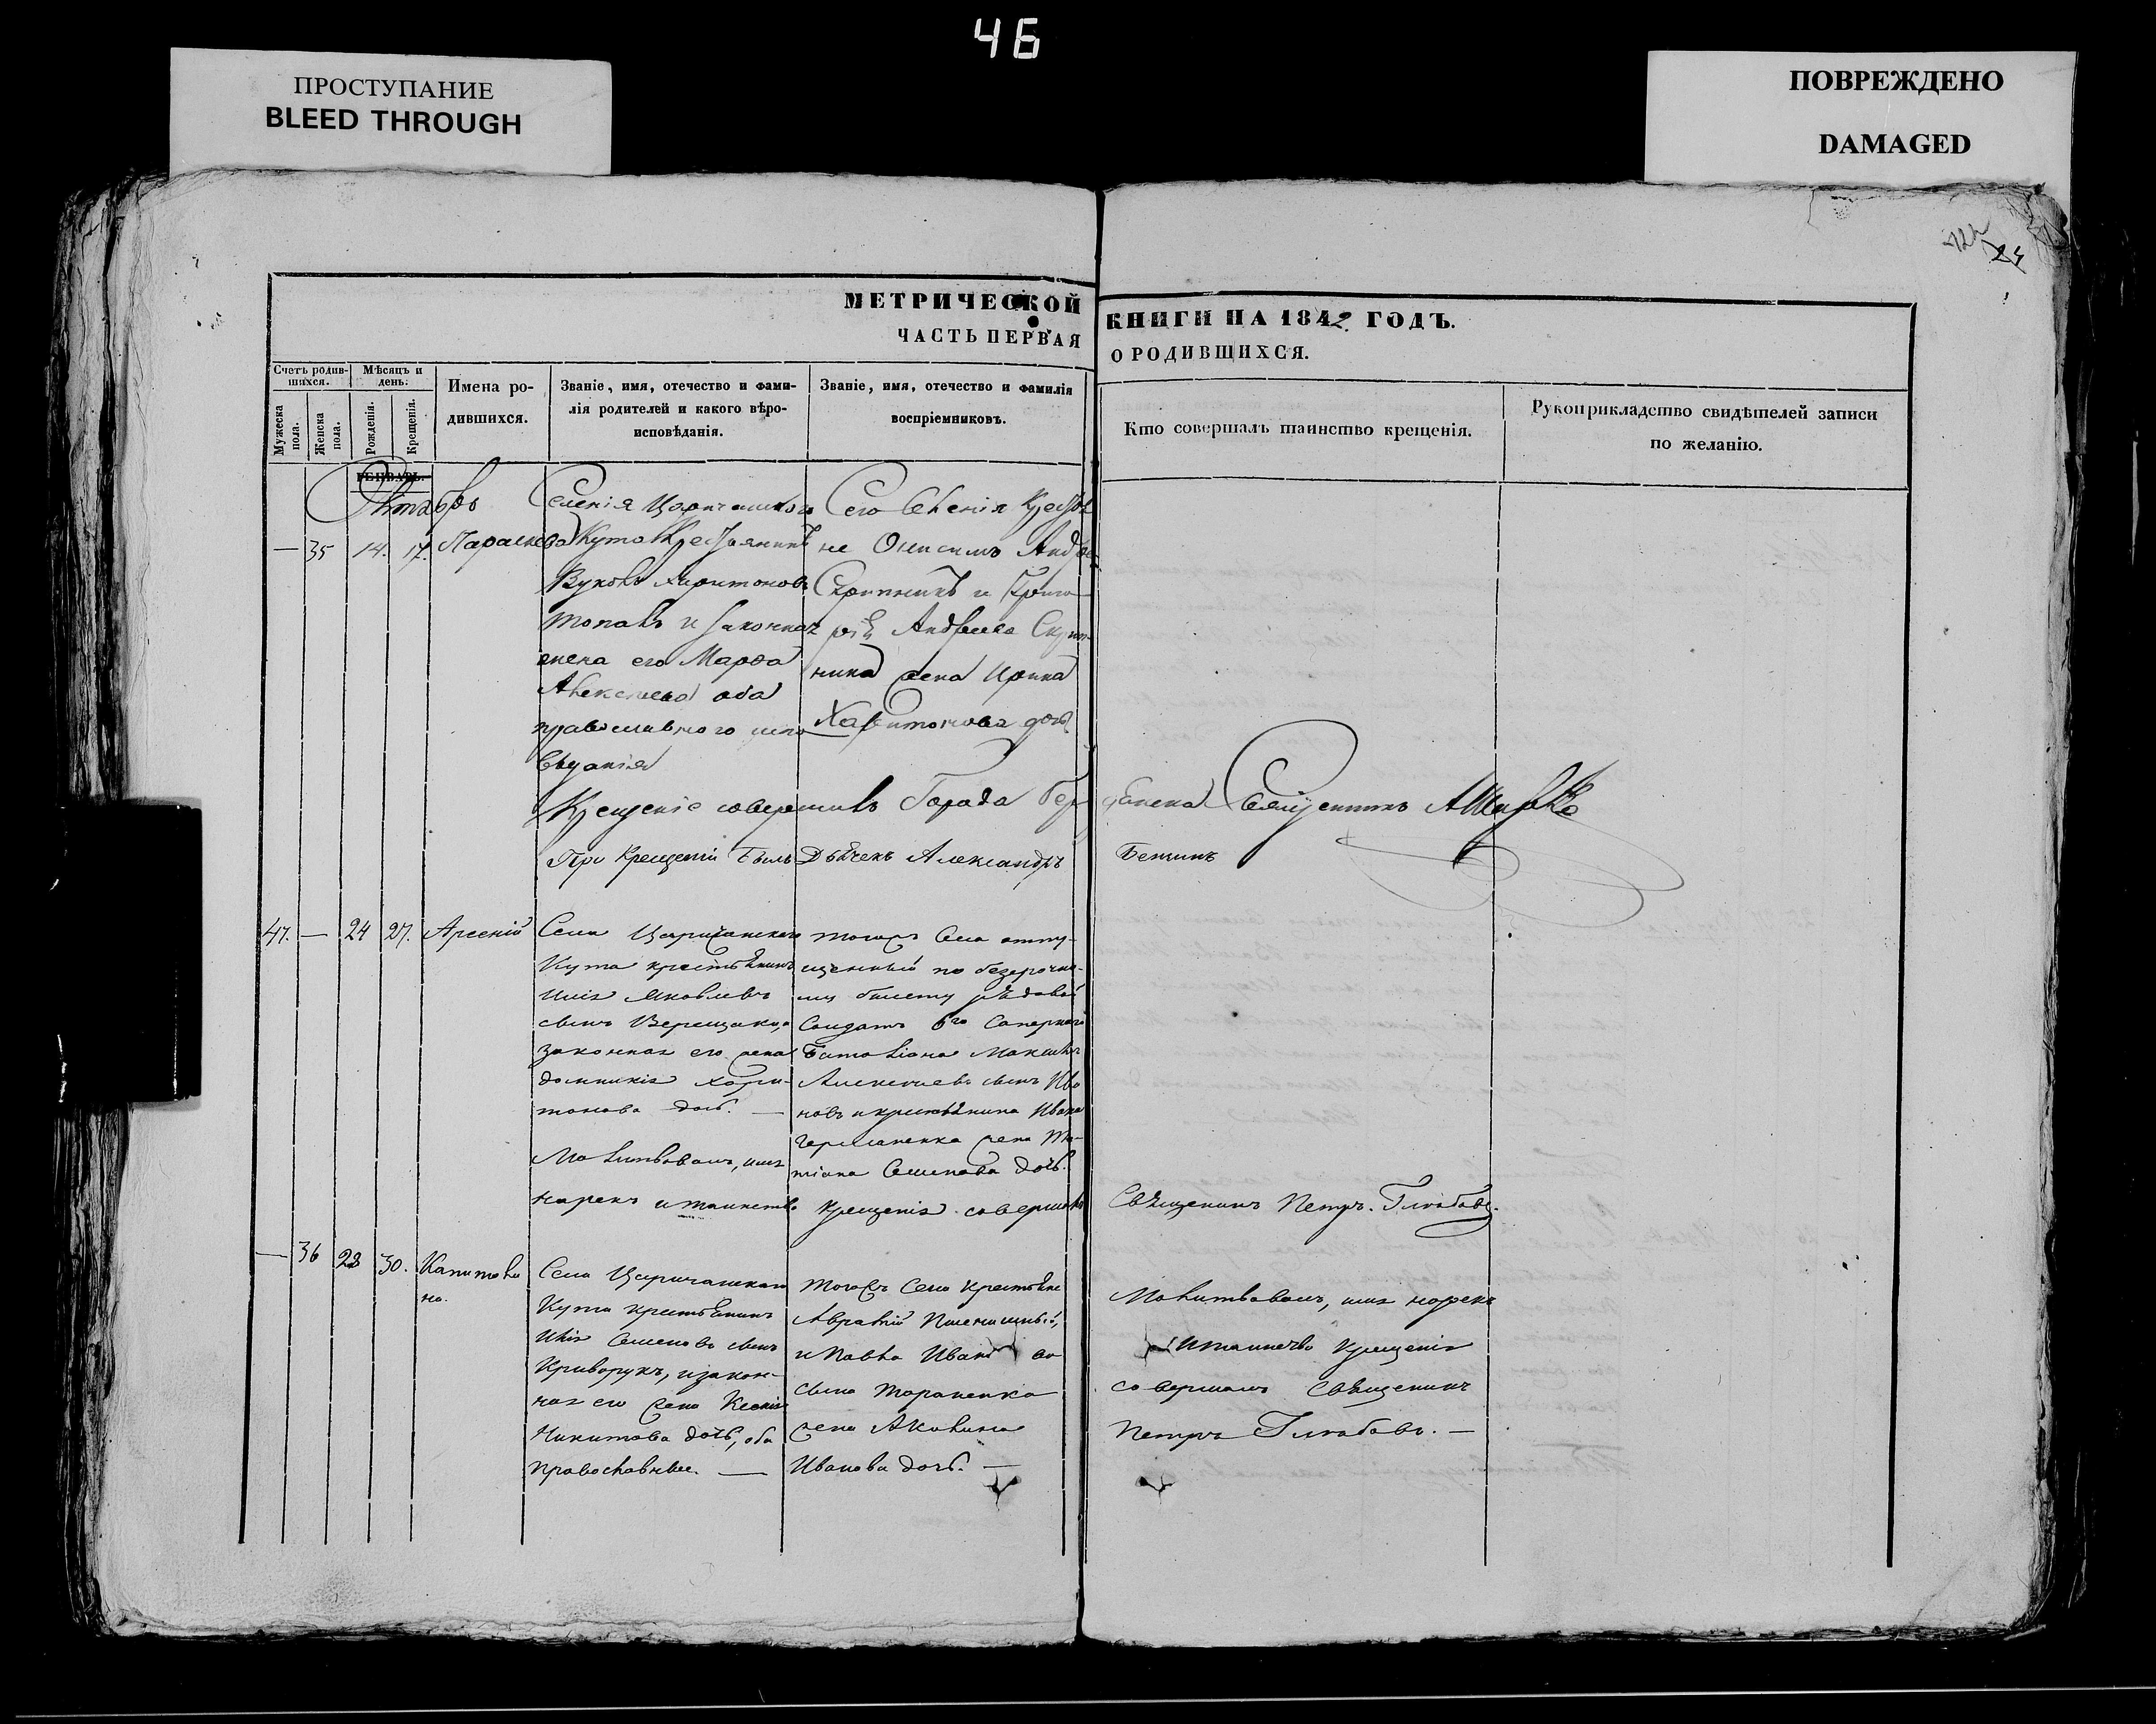 46
ПРОСТУПАНИЕ
BLEED THROUGH
ПОВРЕЖДЕНО
DAMAGED
МЕТРИЧЕСКОЙ КНИГИ НА 1842 ГОДЪ.
ЧАСТЬ ПЕРВАЯ О РОДИВШИХСЯ.
Счетъ родив-
шихся.
Мужеска
пола.
Женска
пола.
Мѣсяцъ и
день.
Рожденія.
Крещенія.
Имена ро-
дившихся.
Званіе, имя, отечество и фами-
лія родителей и какого вѣро-
исповѣданія.
Званіе, имя, отечество и фамилія
воспріемниковъ.
Кто совершалъ таинство крещенія.
Рукоприкладство свидѣтелей записи
по желанію.
ГЕНВАРЬ.
Октябрь
— 35 14. 17. Параскева
Селенія Царичанскаго
Кута Крестьянинъ
Вуколъ Харитоновъ
и законная
жена его Марфа
Алексеева оба
православнаго испо
вѣданія
Сего Селенія Крестья
не Онисимъ Андре
Скрипникъ и Григо
рія Андреева Скрип
ника жена Ирина
Харитонова дочь
Крещеніе совершилъ Города Бердянска Священникъ
При Крещеніи былъ Дьячекъ Александръ
47. — 24 27. Арсеній
Села Царичанскаго
Кута крестьянинъ
Илія Яковлевъ
сынъ Верещака, и
законная его жена
Домникія Хари-
тонова дочь. —
тогожъ Села отпу-
щенный по безсрочно-
му билету рядовой
Солдатъ 6го Сапернаго
Баталіона Максимъ
Алексеевъ сынъ Ива
новъ и крестьянина Ивана
жена Та-
тіана Семенова дочь.
Молитвовалъ, имя
нарекъ и таинство крещенія совершилъ
Священникъ Петръ Глѣбовъ.
— 36 28 30. Капитоли
на.
Села Царичанскаго
Кута крестьянинъ
Илія Семеновъ сынъ
Криворукъ, и закон-
ная его жена Ксенія
Никитова дочь, оба
православные. —
тогожъ Села крестьяне
Авраамій
и Павла Иванова
сына Тараненка
жена Акилина
Иванова дочь. —
Молитвовалъ, имя нарекъ
и таинство крещенія
совершалъ Священникъ
Петръ Глѣбовъ. —